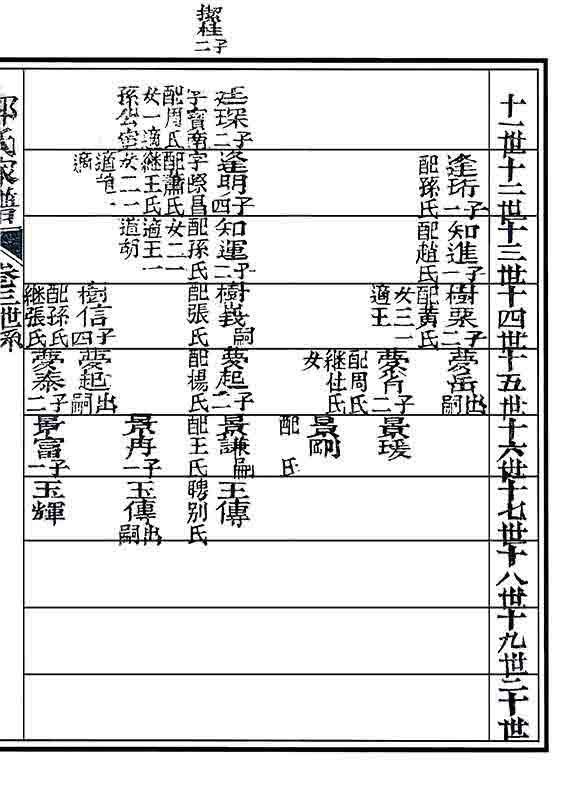 子
二
十一世
十二世
十三世
十四世
十五世
十六世
十七世
十八世
十九世
二十世
逢珩子一
配孫氏
知進子一
配趙氏
樹栗子二
配黃氏
女三一
適王
夢岳出嗣
夢育子二
配周氏
继杜氏
女
景瑗
景嗣
配 氏
琛子二
字寶南
配周氏
女一適
孫公
逢明子四
字際昌
配蕭氏
继王氏
女二一
適
適
知運子二
配孫氏
女二一
適王一
適胡
樹義嗣
配張氏
夢起子二
配楊氏
景謙兼嗣
配王氏
玉傳
聘别氏
景冉子一
玉傳出嗣
樹信子四
配孫氏
继張氏
夢起出嗣
夢泰子二
景富子一
玉輝
氏家譜
卷三世系